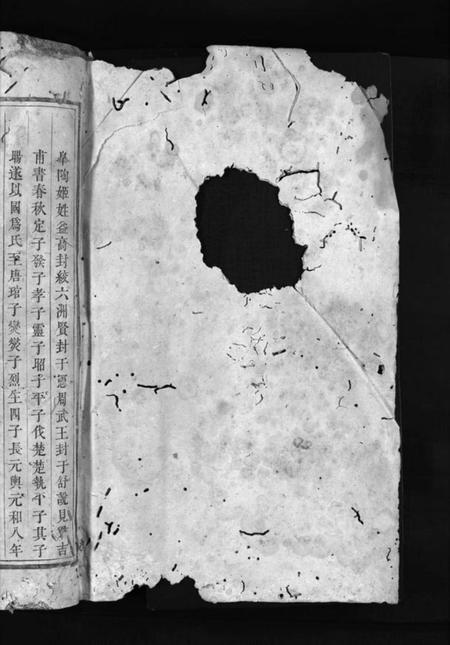 皋陶姬姓益裔封統六洲賢封于鄂周武王封于舒說見尹吉
甫書春秋定子發子孝子靈子瑠子平子伐楚楚執平子其子
勝遂以國為氏至唐琯子燮燮子烈生四子長元輿元和八年